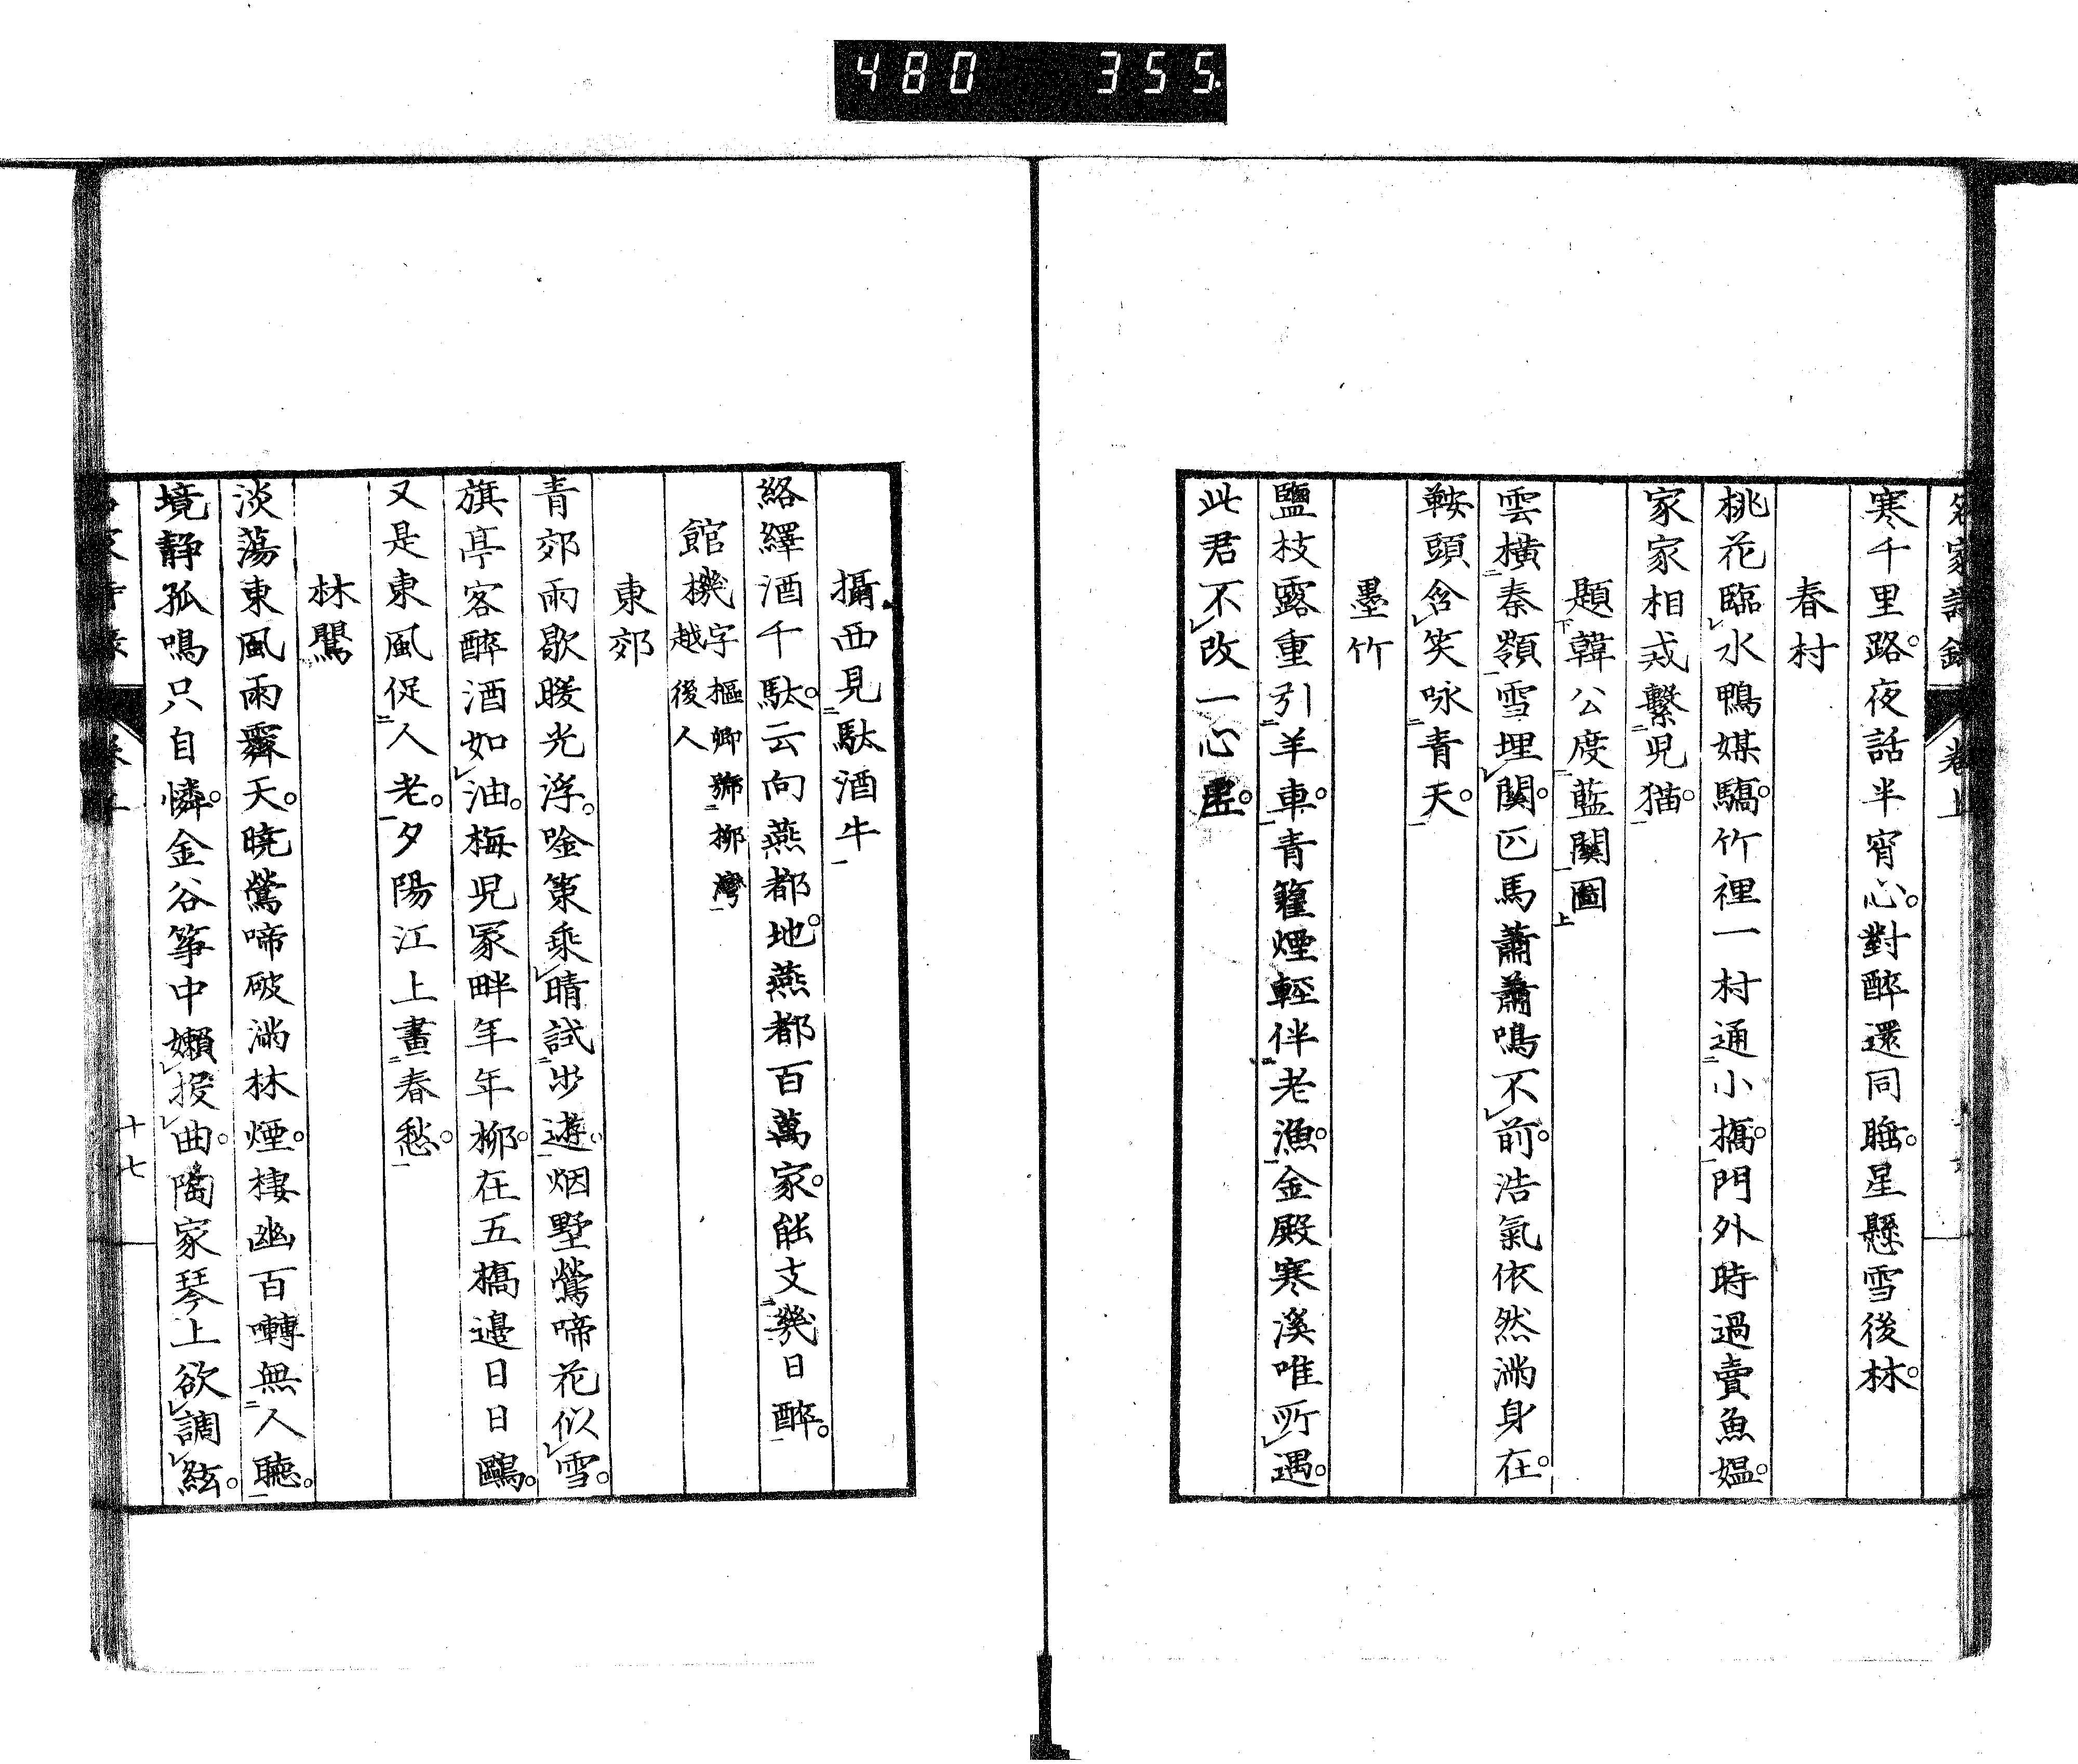 480 355
名家詩錄 卷上
寒千里路。夜話半宵心。對醉還同臨。星懸雪後林。
春村
桃花臨水鴨媒驕。竹裡一村通小橋。門外時過賣魚媼。
家家相戒繫兒猫。
題韓公度藍関圖
雲橫秦嶺雪埋関。匹馬蕭蕭鳴不前。浩氣依然満身在。
鞍頭含笑咏青天。
墨竹
鹽枝露重引羊車。青籊煙輕伴老漁。金殿寒溪唯所遇。
此君不改一心虛。
攝西見馱酒牛
絡繹酒千馱。云向燕都地。燕都百萬家。能支幾日醉。
館機字樞卿號柳灣
越後人
東郊
青郊雨歇暖光浮。唫策乗晴試出遊。烟墅鶯啼花似雪。
旗亭客醉酒如油。梅児冢畔年年柳。在五橋邉日日鷗。
又是東風促人老。夕陽江上畫春愁。
林鸎
淡蕩東風雨霽天。暁鶯啼破満林煙。棲幽百囀無人聴。
境静孤鳴只自憐。金谷筝中嬾按曲。陶家琴上欲調絃。
十七